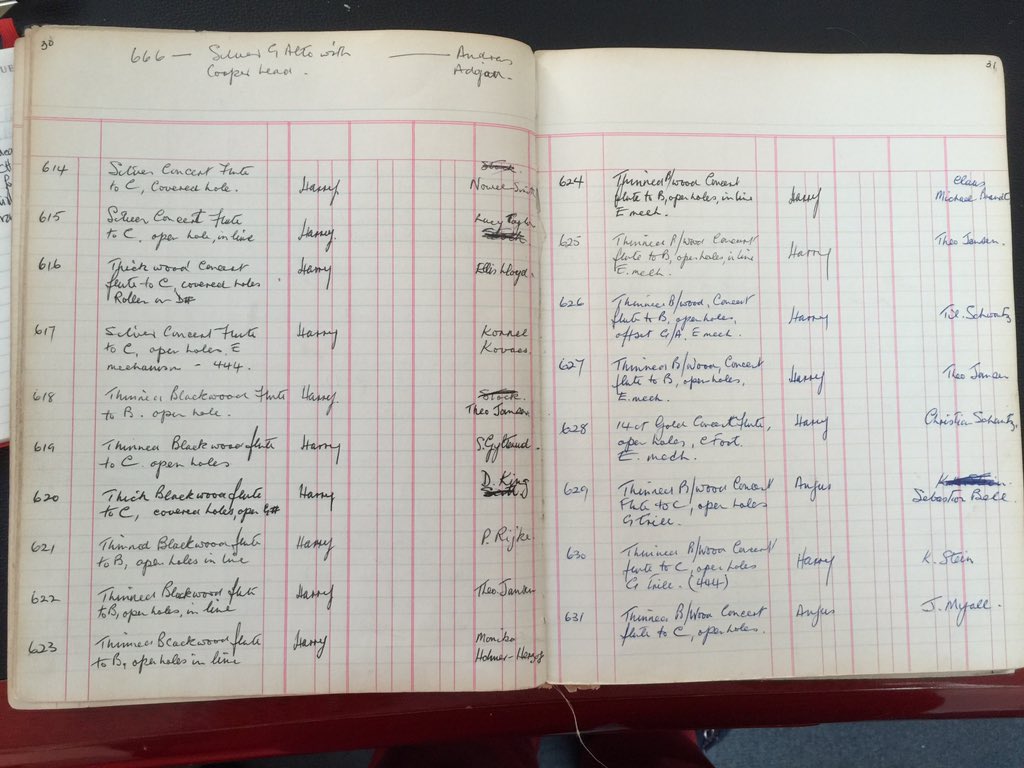 30
666 — Silver G Alto with — Andras
Cooper head. Adjan.
614 Silver Concert Flute
to C, Covered hole. Harry Stock Nowel-Smith
615 Silver Concert Flute Lucy Taylor
to C. open hole, in line Harry. Stock
616 Thick wood Concert Harry Ellis Lloyd.
flute to C, covered holes
Roller on D#
617 Silver Concert Flute Harry Kornel
to C, open holes. E Kovacs.
mechanism - 444.
618 Thinned Blackwood Flute Harry. Stock
to B. open hole. Theo Jansen
619 Thinned Blackwood flute Harry S.Gytterud.
to C. open holes
620 Thick Blackwood flute Harry D. King
to C, covered holes, open G#
621 Thinned Blackwood flute Harry P. Rijke.
to B, open holes in line
622 Thinned Blackwood flute Harry Theo Jansen
to B, open holes, in line
623 Thinned Blackwood flute Harry Monika
to B, open holes in line
31
624 Thinned B/wood Concert Claus
flute to B, open holes, in line Harry Michael Brandt
E mech.
625 Thinned B/wood Concert Theo Jansen.
flute to B, open holes, in line Harry
E. mech.
626 Thinned B/wood, Concert
flute to B, open holes, Harry
offset G/A. E mech.
627 Thinned B/wood, Concert Theo Jansen
flute to B, open holes, Harry
E. mech.
628 14ct Gold Concert flute, Harry Christian
open holes, C Foot.
E. mech.
629 Thinned B/wood Concert Angus
Flute to C, open holes Sebastian Bell.
G Trill.
630 Thinned B/wood Concert Harry K. Stein
flute to C, open holes
G Trill. (444)
631 Thinned B/wood Concert Angus J. Myall.
flute to C, open holes.